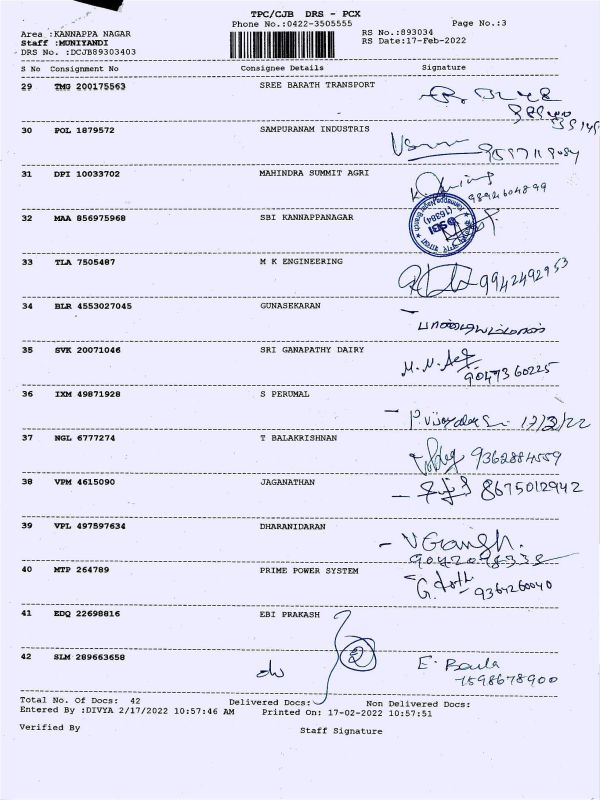 TPC/CJB DRS - PCX
Phone No.:0422-3505555 Page No.:3
Area :KANNAPPA NAGAR RS No.:893034
Staff :MUNIYANDI RS Date:17-Feb-2022
DRS No. :DCJB89303403
S No Consignment No Consignee Details Signature
29 TMG 200175563 SREE BARATH TRANSPORT
30 POL 1879572 SAMPURANAM INDUSTRIS
31 DPI 10033702 MAHINDRA SUMMIT AGRI
9892604899
32 MAA 856975968 SBI KANNAPPANAGAR
SBI
(16384)
33 TLA 7505487 M K ENGINEERING
9942492953
34 BLR 4553027045 GUNASEKARAN
35 SVK 20071046 SRI GANAPATHY DAIRY
9047360225
36 IXM 49871928 S PERUMAL
17/2/22
37 NGL 6777274 T BALAKRISHNAN
9362884559
38 VPM 4615090 JAGANATHAN
8675012942
39 VPL 497597634 DHARANIDARAN
40 MTP 264789 PRIME POWER SYSTEM
41 EDQ 22698816 EBI PRAKASH
42 SLM 289663658
2
7598678900
Total No. Of Docs: 42 Delivered Docs: Non Delivered Docs:
Entered By :DIVYA 2/17/2022 10:57:46 AM Printed On: 17-02-2022 10:57:51
Verified By Staff Signature